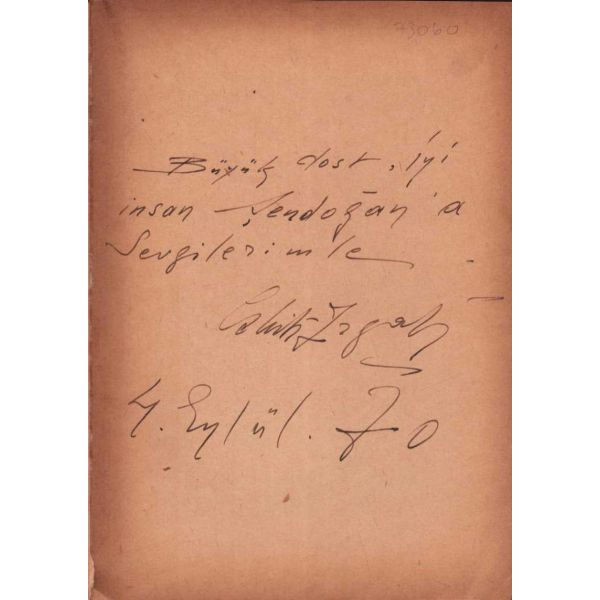 73060
Büyük dost, iyi
insan Şendoğan'a
Sevgilerimle
Cahit Irgat
4. Eylül. 70